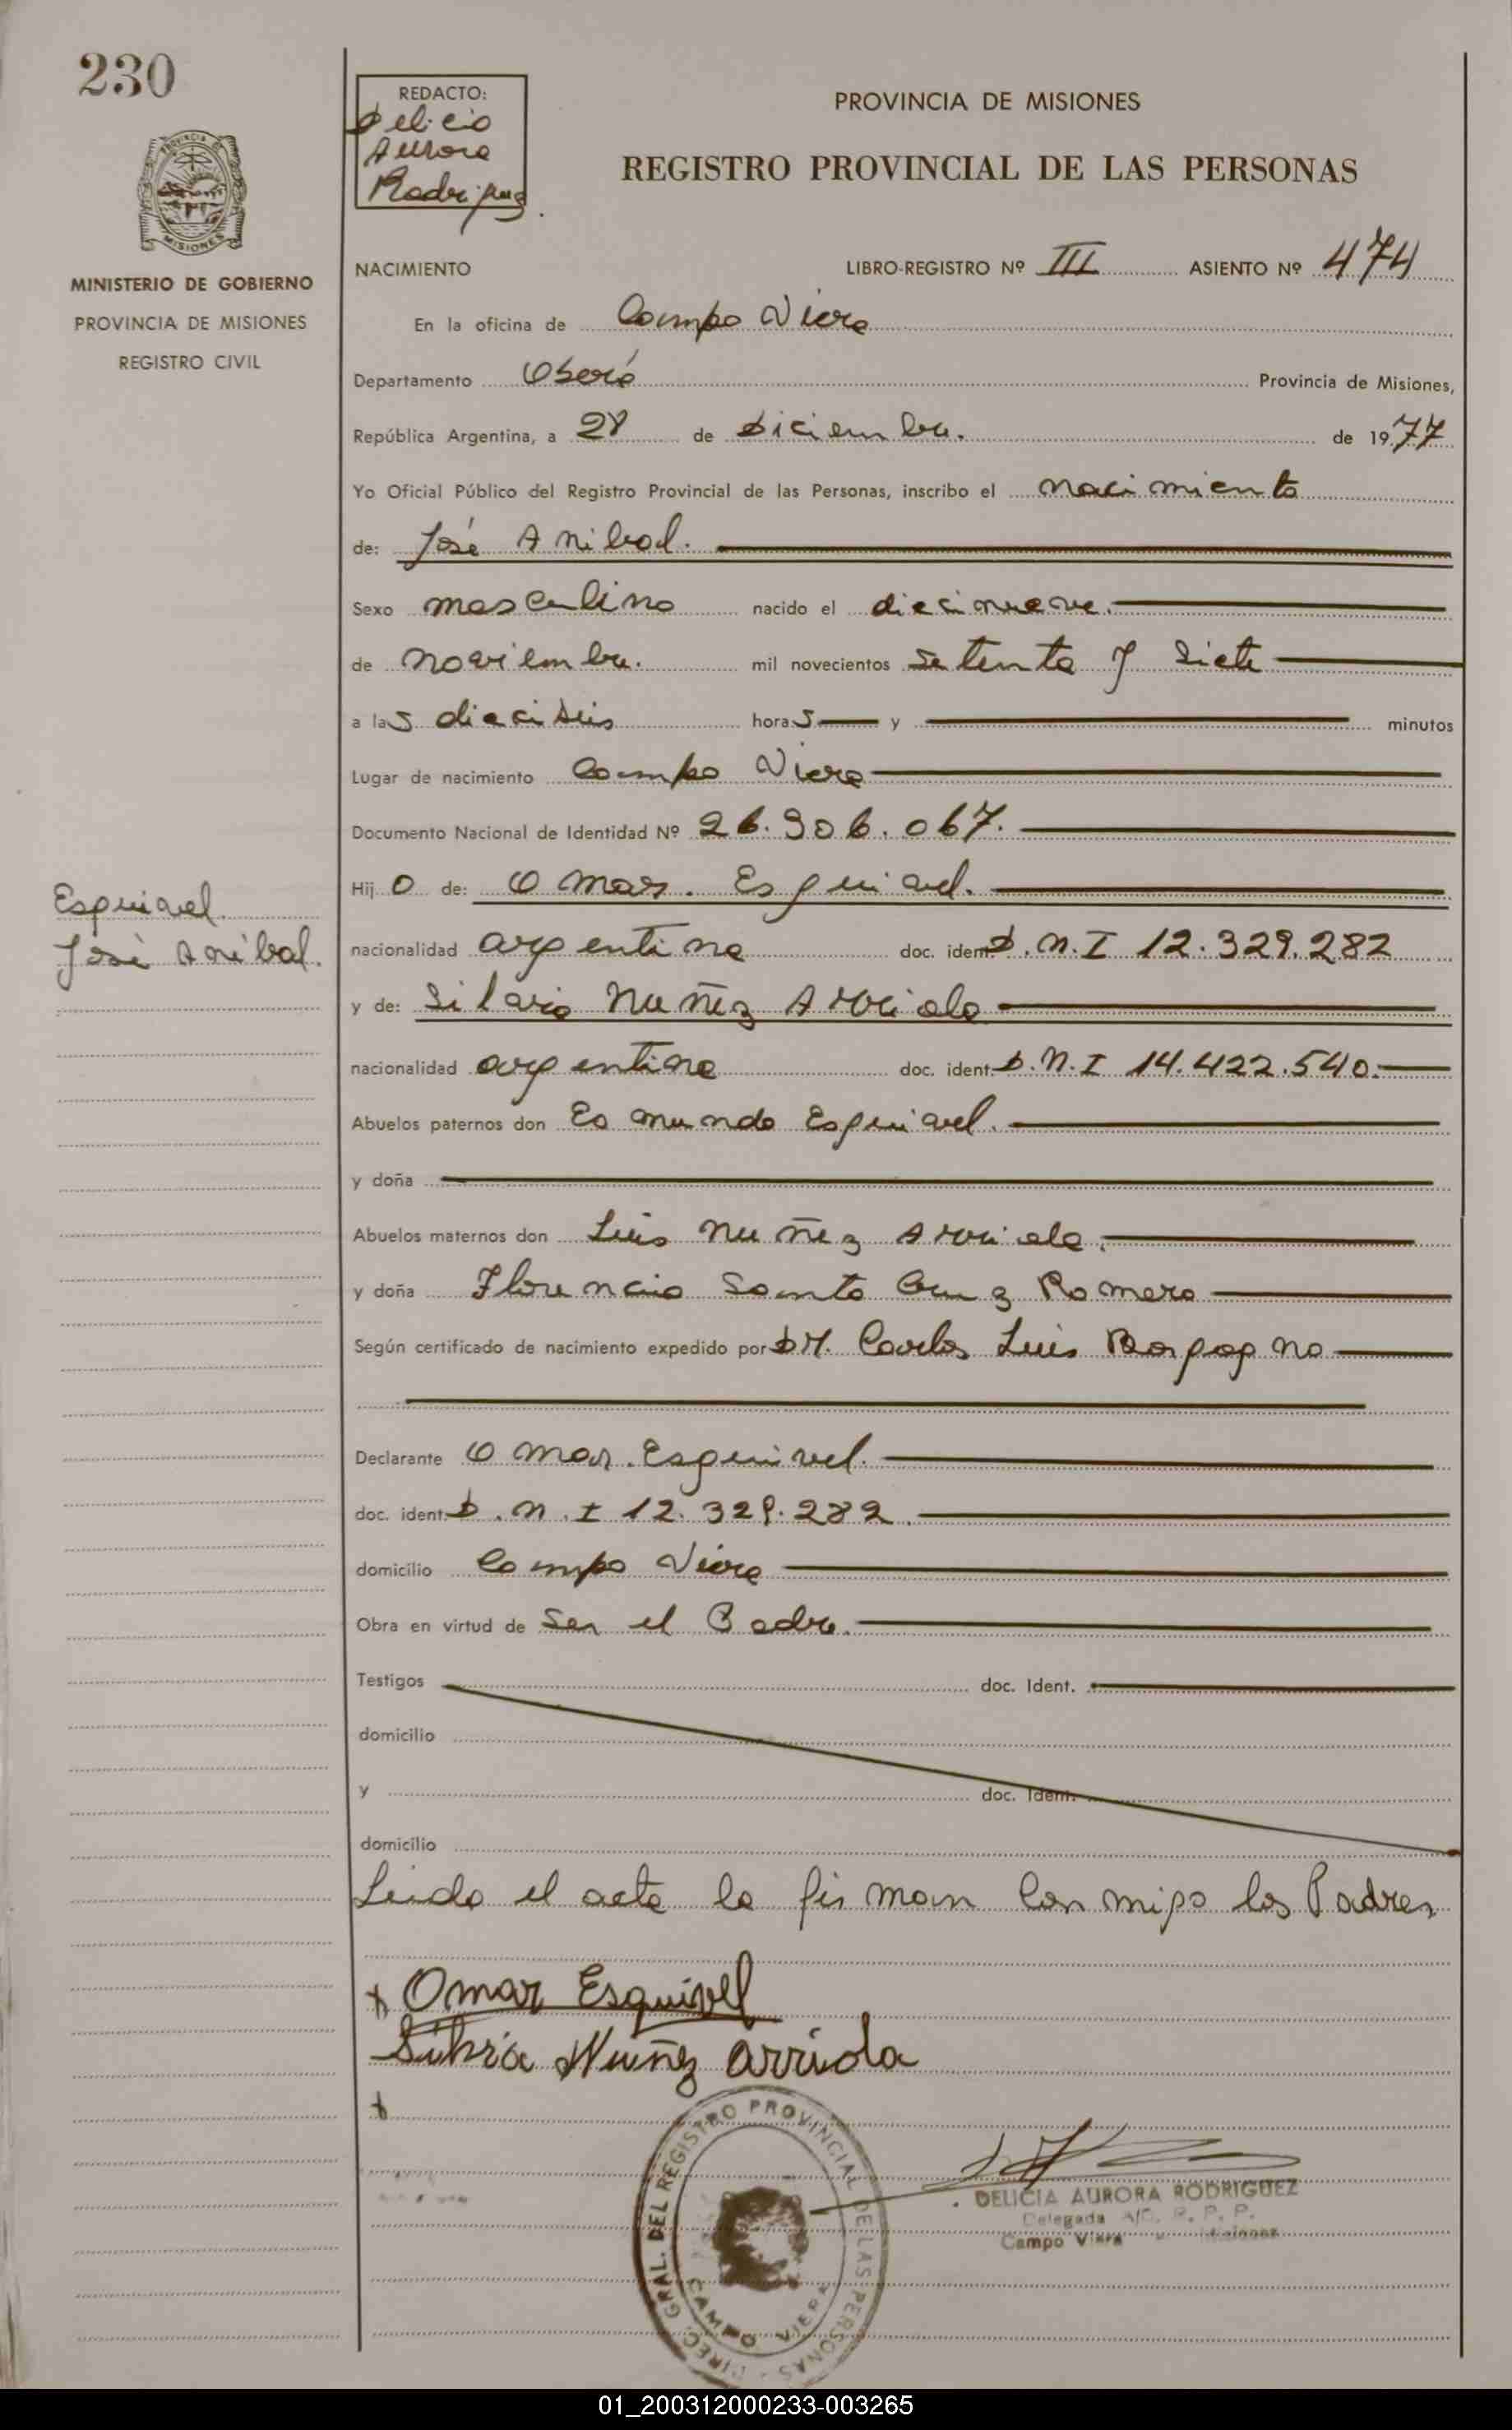 230
REDACTO:
Delicia
Aurora
Rodriguez
PROVINCIA DE MISIONES
REGISTRO PROVINCIAL DE LAS PERSONAS
MISIONES
MINISTERIO DE GOBIERNO
PROVINCIA DE MISIONES
REGISTRO CIVIL
NACIMIENTO LIBRO-REGISTRO Nº III ASIENTO Nº 474
En la oficina de Campo Viera
Departamento Oberá Provincia de Misiones,
República Argentina, a 28 de Diciembre. de 1977
Yo Oficial Público del Registro Provincial de las Personas, inscribo el nacimiento
de: José Anibal.
Sexo masculino nacido el diecinueve.
de noviembre. mil novecientos setenta y siete
a las dieciseis horas y minutos
Lugar de nacimiento Campo Viera
Documento Nacional de Identidad Nº 26.306.067.
Hijo de: Omar. Esquivel.
Esquivel.
José Anibal.
nacionalidad argentina doc. ident. D.N.I 12.329.282
y de: Silvia Nuñez Arriola
nacionalidad argentina doc. ident. D.N.I 14.422.540.
Abuelos paternos don Esmundo Esquivel.
y doña
Abuelos maternos don Luis Nuñez Arriola.
y doña Florencia Santa Cruz Romero
Según certificado de nacimiento expedido por Dr. Carlos Luis
Declarante Omar. Esquivel.
doc. ident. D.N.I 12.329.282.
domicilio Campo Viera
Obra en virtud de Ser el Padre.
Testigos doc. Ident.
domicilio
y doc. Ident.
domicilio
Leida el acta la firman conmigo los Padres
x Omar Esquivel
Silvia Nuñez Arriola
x
DIREC. GRAL. DEL REGISTRO PROVINCIAL DE LAS PERSONAS
CAMPO VIERA
DELICIA AURORA RODRIGUEZ
Delegada A/C. R. P. P.
Campo Viera - Misiones
01_200312000233-003265